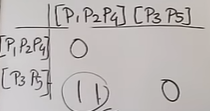 [P₁P₂P₄] [P₃ P₅]
[P₁P₂P₄] 0
[P₃ P₅] 11 0